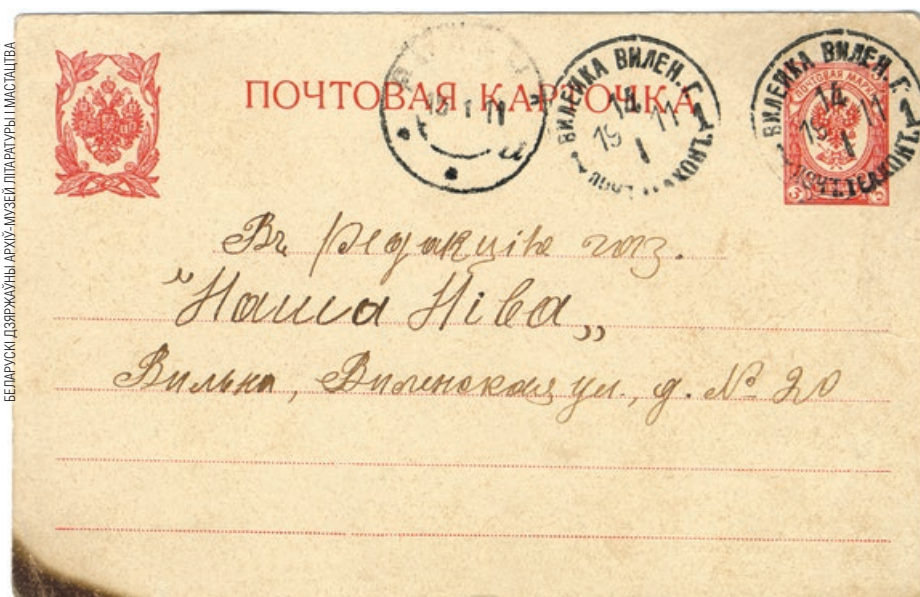 БЕЛАРУСКІ ДЗЯРЖАЎНЫ АРХІЎ-МУЗЕЙ ЛІТАРАТУРЫ І МАСТАЦТВА
ПОЧТОВАЯ КАРТОЧКА
1 11
ВИЛЕЙКА ВИЛЕН. Г.
14
19 11
1
1
ВИЛЕЙКА ВИЛЕН. Г.
14
19 11
1
1
ПОЧТОВАЯ МАРКА
3
Въ Редакцію газ.
"Наша Ніва„
Вильна, Виленская ул., д. № 20